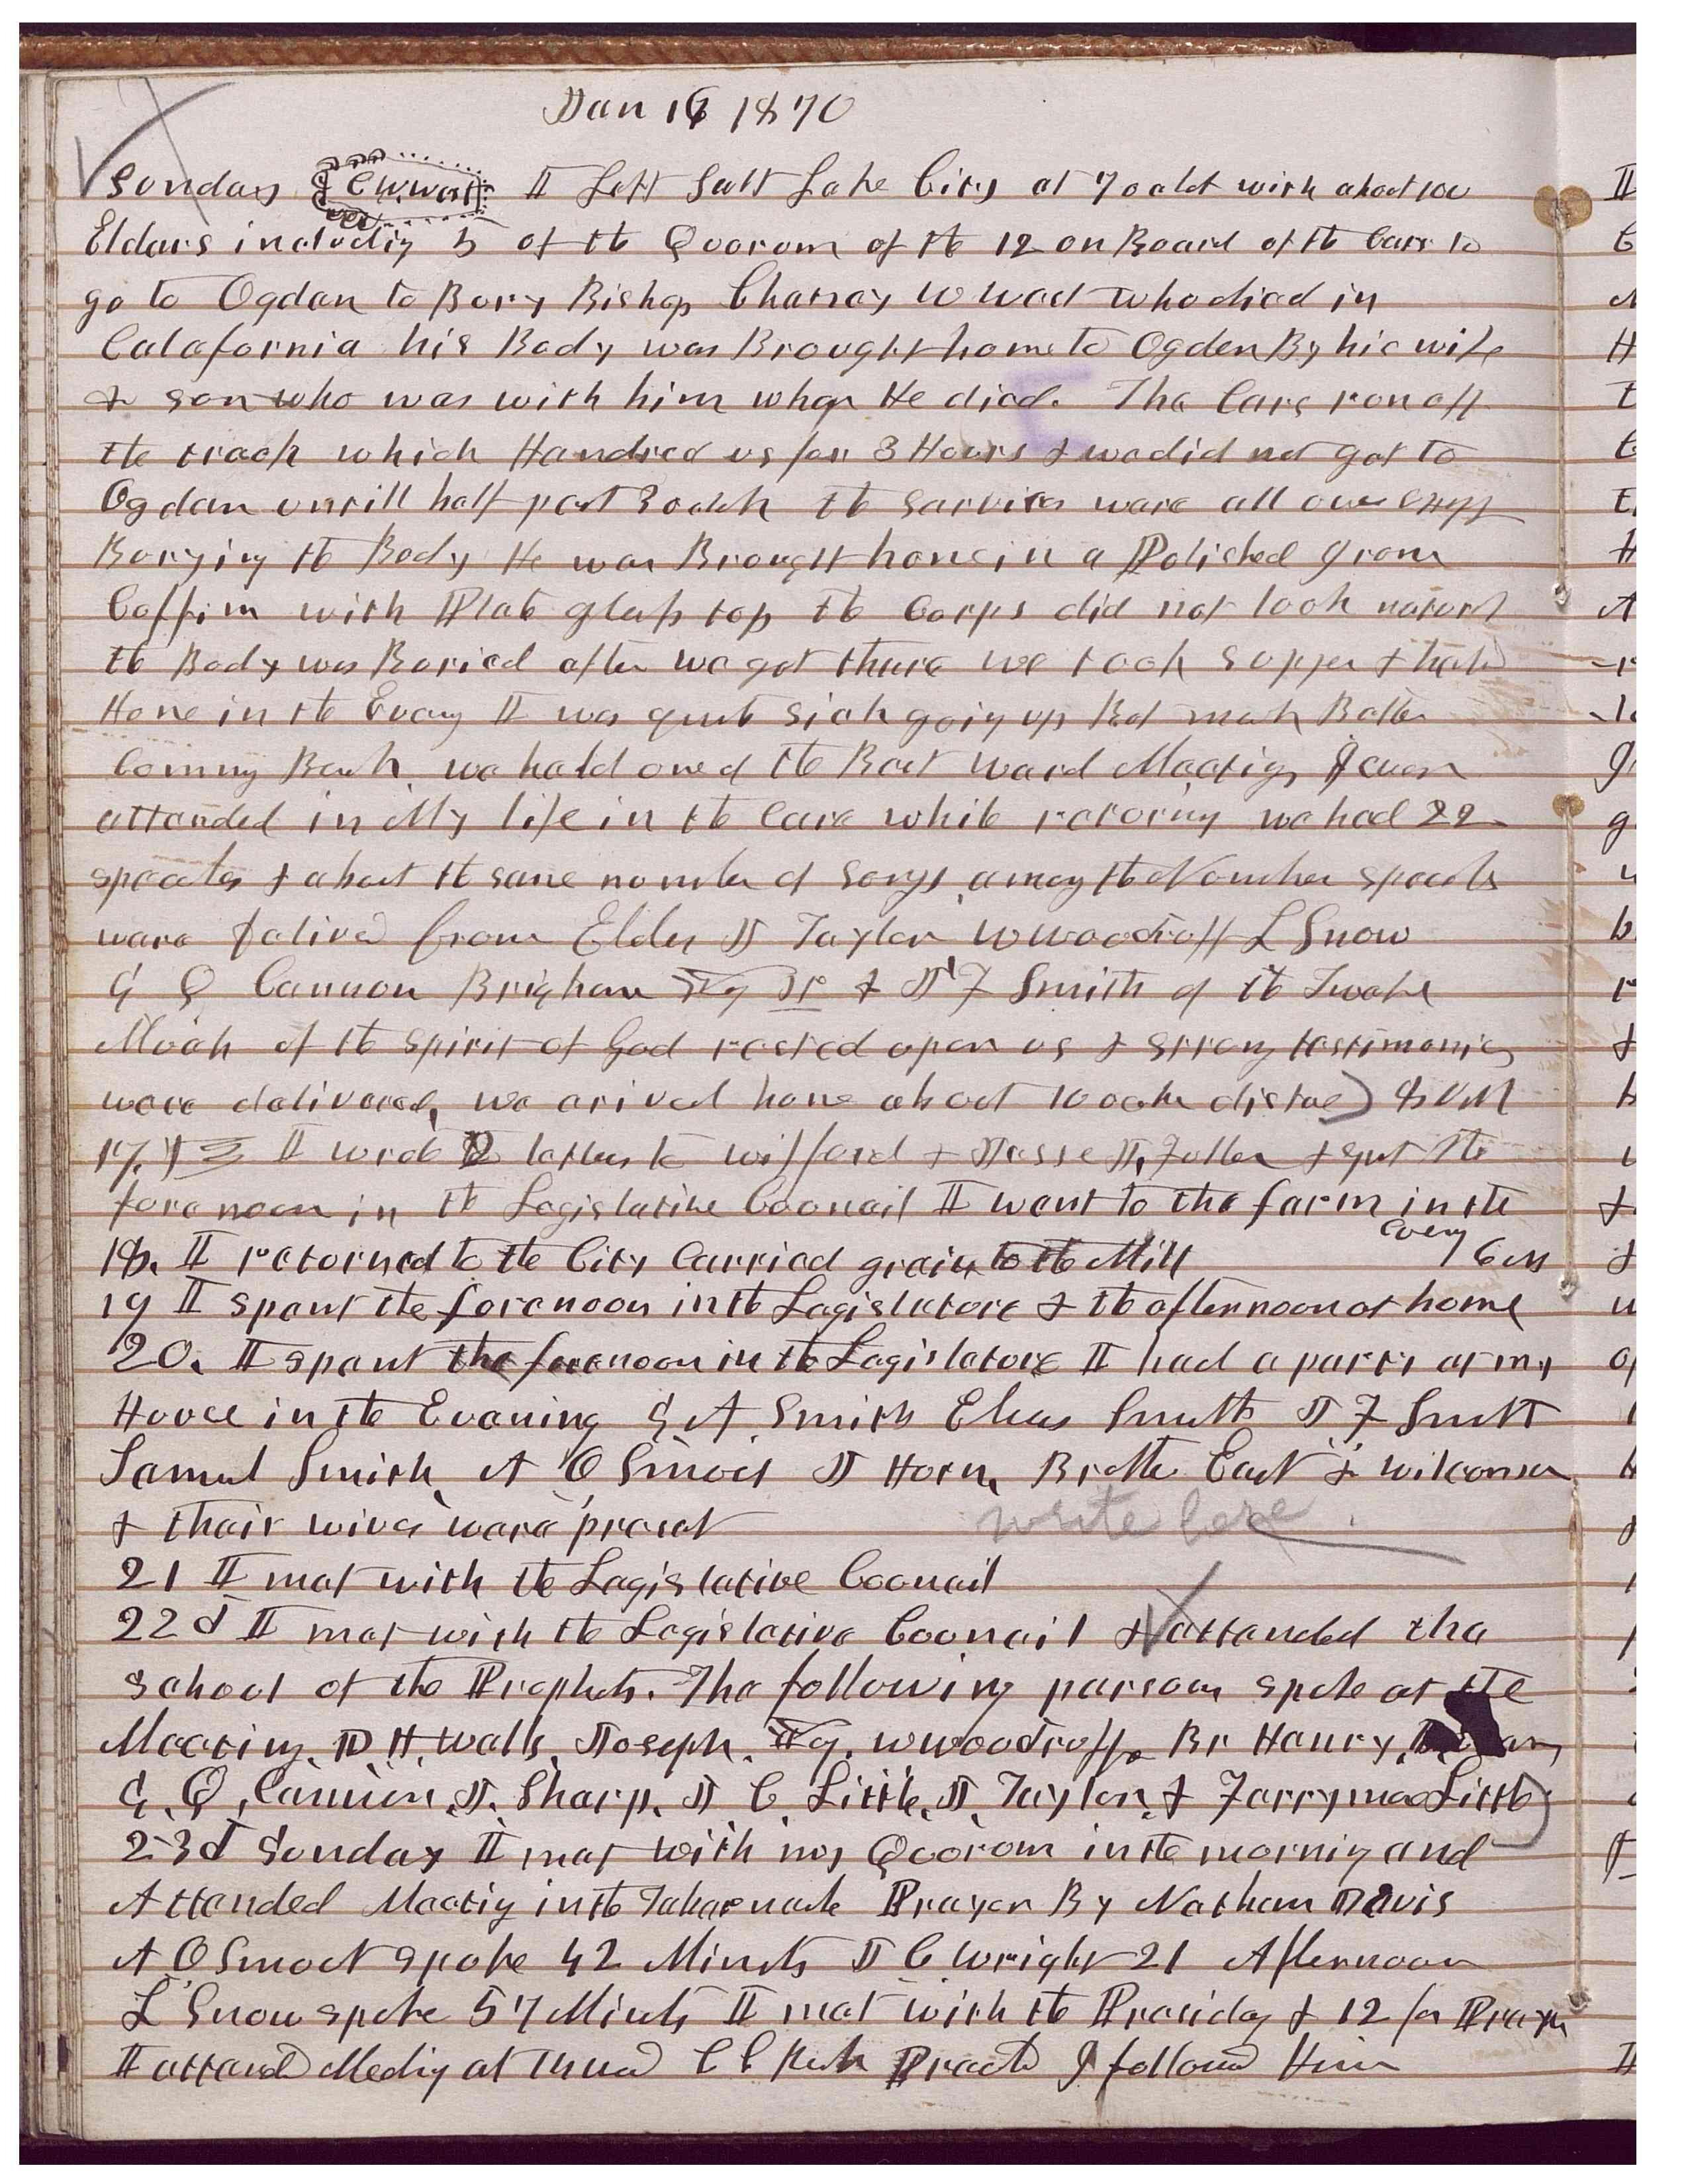 Jan 16 1870
Sunday C W West I Left Salt Lake City at 7 oclok with about 100
Elders includig 5 of the Quorum of the 12 on Board of the Cars to
go to Ogden to Bury Bishop Chancy W West who died in
Calafornia his Body was Brought home to Ogden By his wife
& son who was with him when He died. The Cars run off
the track which Hendred us for 3 Hours & we did not get to
Ogden untill half past 3 oclok the Services were all over except
Burying the Body He was Brought home in a Polished Iron
Coffin with Plate glass top the Corps did not look natural
the Body was Buried after we got there we took supper &
Home in the Eveng I was quite sick goig up But much Better
Coming Back we held one of the Best ward Meetigs I ever
attended in My life in the Cars while returing we had 22
speeches & about the same number of songs among the Number speeches
were delived from Elder J Taylor W Woodruff L Snow
G Q Cannon Brigham Yg Jr & J F Smith of the Twelve
Much of the spirit of God rested upon us & strong testimonies
were delivered, we arived home about 10 oclok distac) 80 M
17. I wrote 2 letters to Wilford & Jesse J, Fuller & spt the
forenoon in the Legislative Councail I went to the farm in the
Eveng 6 M
18. I returned to the City Carried grain to the Mill
19 I spent the forenoon in the Legislature & the afternoon at home
20. I spent the forenoon in the Legislature I had a party at my
House in the Evening G A Smith Elias Smith J F Smith
Samul Smith, A O Smoot J Horn, Brothe East & Wilconson
& their wives were present
write here.
21 I met with the Legislative Councail
22d I met with the Legislative Councail & attended the
School of the Prophets. The following persons spoke at the
Meeting. D H. Wells, Joseph. Yg. W Woodruff, Br Henry,
G. Q, Cannon, J. Sharp, J C Little, J, Taylor, & Ferrymore Little)
23d Sunday I met with my Quorum in the mornig and
Attended Meetig in the Tabernacle Prayer By Nathan Davis
A O Smoot spoke 42 Minuts J C Wright 21 Afternoon
L Snow spoke 57 Minuts I met with the Presidcy & 12 for Prayer
I attend Medig at 14 Wd C C Rich Preach I followd Him